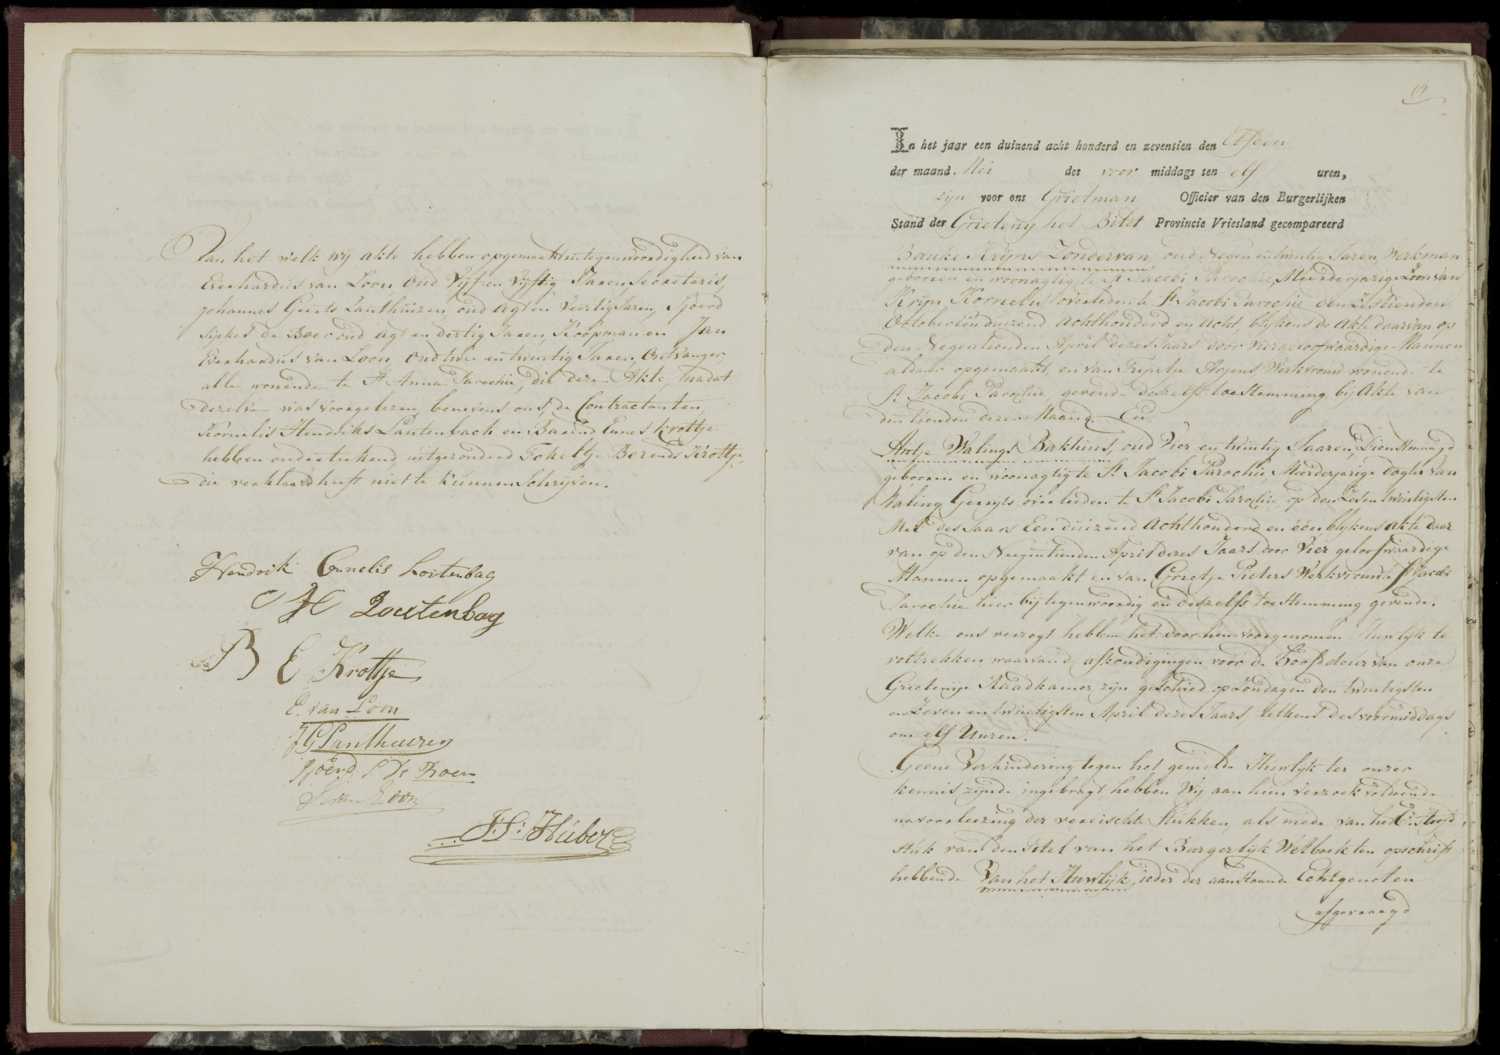 Van het welk wij akte hebben opgemaakt in tegenwoordigheid van
Everhardus van Loon oud Vijf en Vijftig Jaren Secretaris,
Johannes Geerts Lanthuizen, oud Agt en Veertig Jaren, Sjoerd
Sipkes de Boer oud agt en dertig Jaren, Koopman en Jan
Everhardus van Loon oud en twintig Jaren Ontvanger
alle wonende te St Anna Parochie, die deze Akte, nadat
dezelve was voorgelezen, benevens ons, de Contractanten,
Kornelis Hendriks Lautenbach en Barend Ennes Krottje
hebben onderteekend, uitgezonderd Fokeltje Berends Krottje,
die verklaard heeft niet te kunnen Schrijven.
Hendrik Cornelis Loitenbag
C H Loutenbag
B E Krottje
E. van Loon
JG Lanthuizen
Sjoerd S De Boer
van Loon
Hüber
19
In het jaar een duizend acht honderd en zeventien den
der maand Mei des voor middags ten elf uren,
zijn voor ons Grietman Officier van den Burgerlijken
Stand der Grieteny het Bildt Provincie Vriesland gecompareerd
Bauke Krijns Zondervan, oud Negen en twintig Jaren, Werkman
geboren en woonagtig te St Jacobi Parochie, Meerderjarige Zoon van
Krijn Kornelis overleden te St Jacobi Parochie den
October een duizend Achthonderd en Acht, blijkens de Akte daarvan op
den Negentienden April dezes Jaars door Vier geloofwaardige Mannen
aldaar opgemaakt, en van Trijntje Werkvrouw wonende te
St Jacobi Parochie, gevende dezelfs toestemming bij Akte van
den tienden dezer Maand En
Antje Walings Bakkius, oud Vier en twintig Jaaren, Dienstmaagd
geboren en woonagtig te St Jacobi Parochie, Meerderjarige dogter van
Waling Gerrijts overleden te St Jacobi Parochie, op den Zeven twintigsten
Mei des Jaars Een duizend Achthonderd en een blijkens akte daar
van op den Negentienden April dezes Jaars door Vier geloofwaardige
Mannen opgemaakt en van Grietje Pieters Werkvrouw te St Jacobi
Parochie hier bij tegenwoordig en dezelfs toestemming gevende.
Welke ons verzogt hebben het door hun voorgenomen Huwlijk te
voltrekken waarvan de afkondigingen voor de Hoofddeur van onze
Grietenije Raadkamer zijn geschied op Zondagen den twintigsten
en Zeven en twintigsten April dezes Jaars telkens des voormiddags
om elf Uuren.
Geene Verhindering tegen het gemelde Huwlijk ter onzer
kennis zijnde ingebragt hebben Wij aan hun verzoek voldoende
na voorleezing der vereischte Stukken, als mede van het
stuk van den titel van het Burgerlijk Wetboek ten opschrift
hebbende Van het Huwlijk, ieder der aanstaande Echtgenoten
afgevraagd